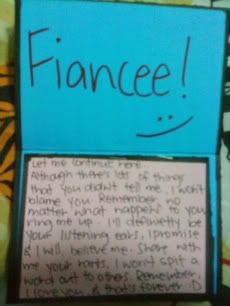 Fiancee!
:)
Let me continue here...
Although there's lots of things
that you didn't tell me. I won't
blame you. Remember no
matter what happens to you
ring me up. I'll definetly be
your listening ears, I promise
& I will, believe me. Share with
me your hurts. I won't spit a
word out to others. Remember
I love you & that's forever :D